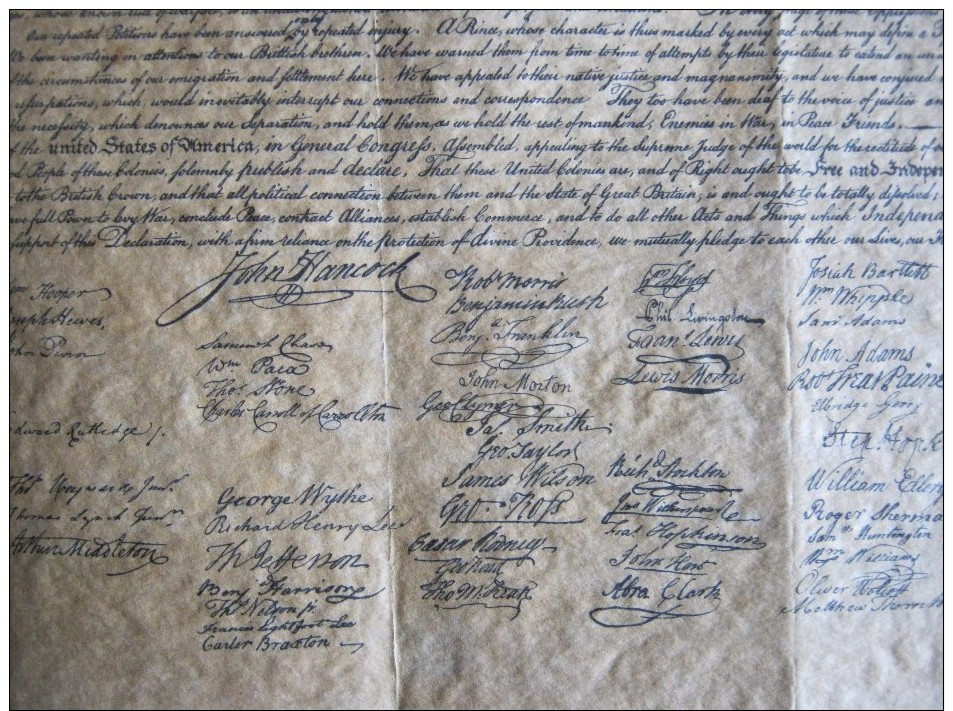 Our repeated Petitions have been answered only by repeated injury. A Prince, whose character is thus marked by every act which may define a
been wanting in attentions to our Brittish brethren. We have warned them from time to time of attempts by their legislature to extend an
the circumstances of our emigration and settlement here. We have appealed to their native justice and magnanimity, and we have conjured
usurpations, which, would inevitably interrupt our connections and correspondence They too have been deaf to the voice of justice
the necessity, which denounces our Separation, and hold them, as we hold the rest of mankind, Enemies in War, in Peace Friends.
of the united States of America, in General Congress, Assembled, appealing to the Supreme Judge of the world for the rectitude of
People of these Colonies, solemnly publish and declare, That these United Colonies are, and of Right ought to be Free and Indepen
to the British Crown, and that all political connection between them and the State of Great Britain, is and ought to be totally dissolved;
full Power to levy War, conclude Peace, contract Alliances, establish Commerce, and to do all other Acts and Things which Independ
support of this Declaration, with a firm reliance on the protection of divine Providence, we mutually pledge to each other our Lives, our
Hooper
Hewes,
John Penn
Edward Rutledge /.
Thos Heyward Junr.
Thomas Lynch Junr.
Arthur Middleton
John Hancock
Samuel Chase
Wm. Paca
Thos. Stone
Charles Carroll of Carrollton
George Wythe
Richard Henry Lee
Th Jefferson
Benj. Harrison
Thos. Nelson jr.
Francis Lightfoot Lee
Carter Braxton
Robt. Morris
Benjamin Rush
Benj. Franklin
John Morton
Geo Clymer
Jas. Smith.
Geo. Taylor
James Wilson
Geo. Ross
Caesar Rodney
Geo Read
Tho M:Kean
Wm Floyd
Phil. Livingston
Frans. Lewis
Lewis Morris
Richd. Stockton
Jno Witherspoon
Fras. Hopkinson
John Hart
Abra Clark
Josiah Bartlett
Wm. Whipple
Saml. Adams
John Adams
Robt. Treat Paine
Elbridge Gerry
Step. Hopk
William Ellery
Roger Sherma
Saml. Huntington
Wm. Williams
Oliver Wolcott
Matthew Thornt